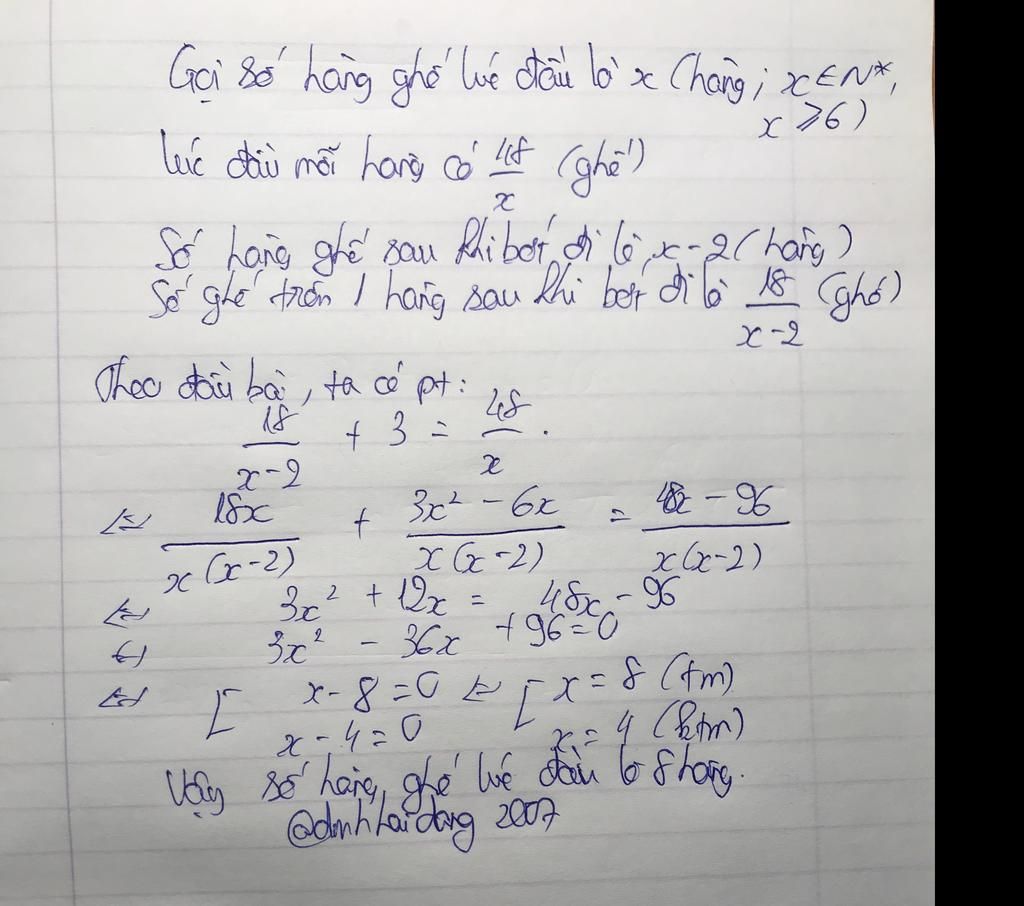 Gọi số hàng ghế lúc đầu là x (hàng; x ∈ N*,
x ⩾ 6)
lúc đầu mỗi hàng có 48/x (ghế)
Số hàng ghế sau khi bớt đi là x-2 (hàng)
Số ghế trên 1 hàng sau khi bớt đi là 18/(x-2) (ghế)
Theo đầu bài, ta có pt:
18/(x-2) + 3 = 48/x .
⇔ 18x/(x(x-2)) + (3x² - 6x)/(x(x-2)) = (48x - 96)/(x(x-2))
⇔ 3x² + 12x = 48x - 96
⇔ 3x² - 36x + 96 = 0
⇔ [ x - 8 = 0 ⇔ [ x = 8 (tm)
x - 4 = 0 x = 4 (ktm)
Vậy số hàng ghế lúc đầu là 8 hàng.
@dinhhaidang 2007